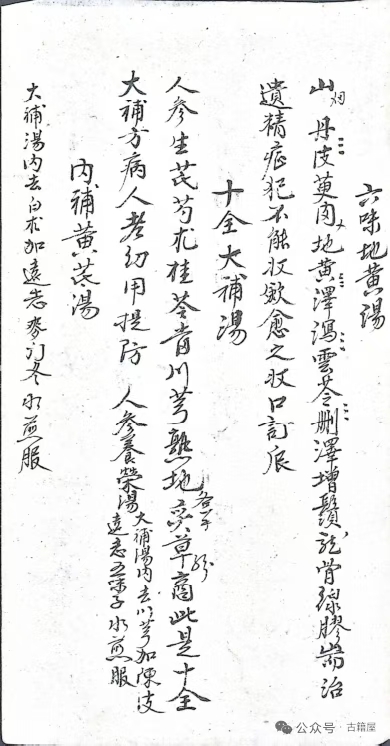 六味地黃湯
山 丹皮萸肉 地黃澤瀉雲苓刪澤增鬚龍骨線膠耑治
遺精症犯不能收歛愈之收口訂辰
十全大補湯
人參生芪芍朮桂苓當川芎熟地炙草 各等分 商此是十全
大補方病人老幼用提防 人參養榮湯 大補湯內去川芎加陳皮
遠志五味子水煎服
內補黃芪湯
大補湯內去白朮加遠志麥門冬水煎服
公众号·古籍屋